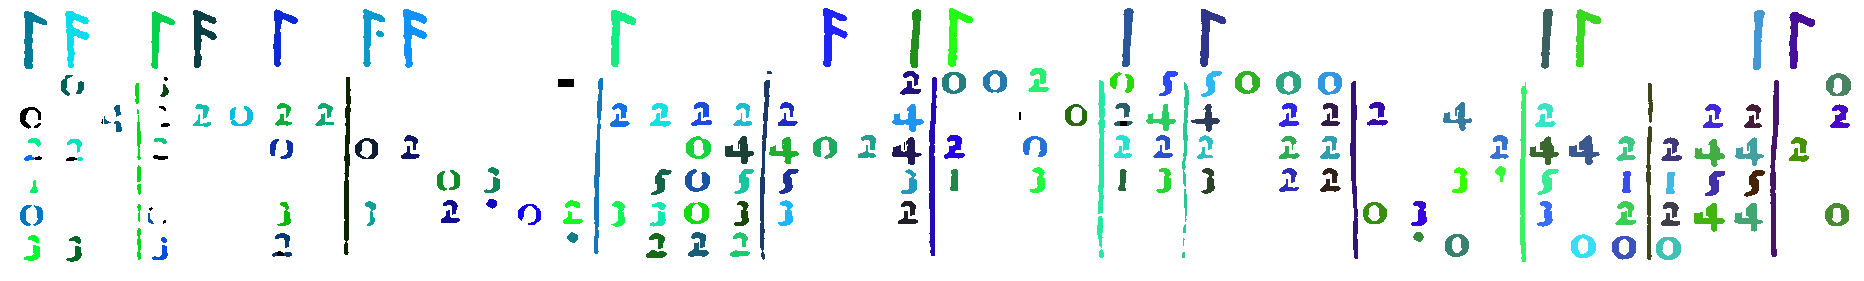 0 2 0 0 2 0 5 5 0 0 0 0
0 4 2 0 2 2 2 2 2 2 2 4 0 2 4 4 2 2 2 4 2 2 2 2
2 2 2 0 0 2 0 4 4 0 2 4 2 0 2 2 2 2 2 2 4 4 2 2 4 4 2
0 3 5 0 5 5 3 1 3 1 3 3 2 2 3 5 1 1 5 5
0 3 3 2 0 2 3 3 0 3 3 2 0 3 3 2 2 4 4 0
3 3 3 2 2 2 2 0 0 0